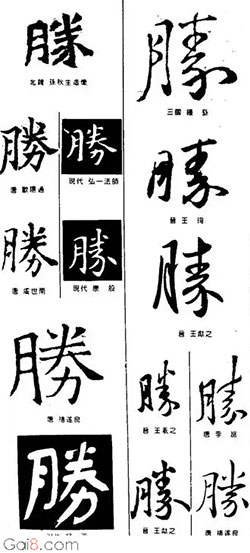 勝
北魏 孫秋生造像
勝
唐 歐陽通
勝
現代 弘一法師
勝
唐 虞世南
勝
現代 康殷
勝
唐 褚遂良
勝
勝
三國 鍾繇
勝
晉 王珣
勝
晉 王獻之
勝
晉 王羲之
勝
唐 李邕
勝
晉 王獻之
勝
唐 褚遂良
Gai8.com